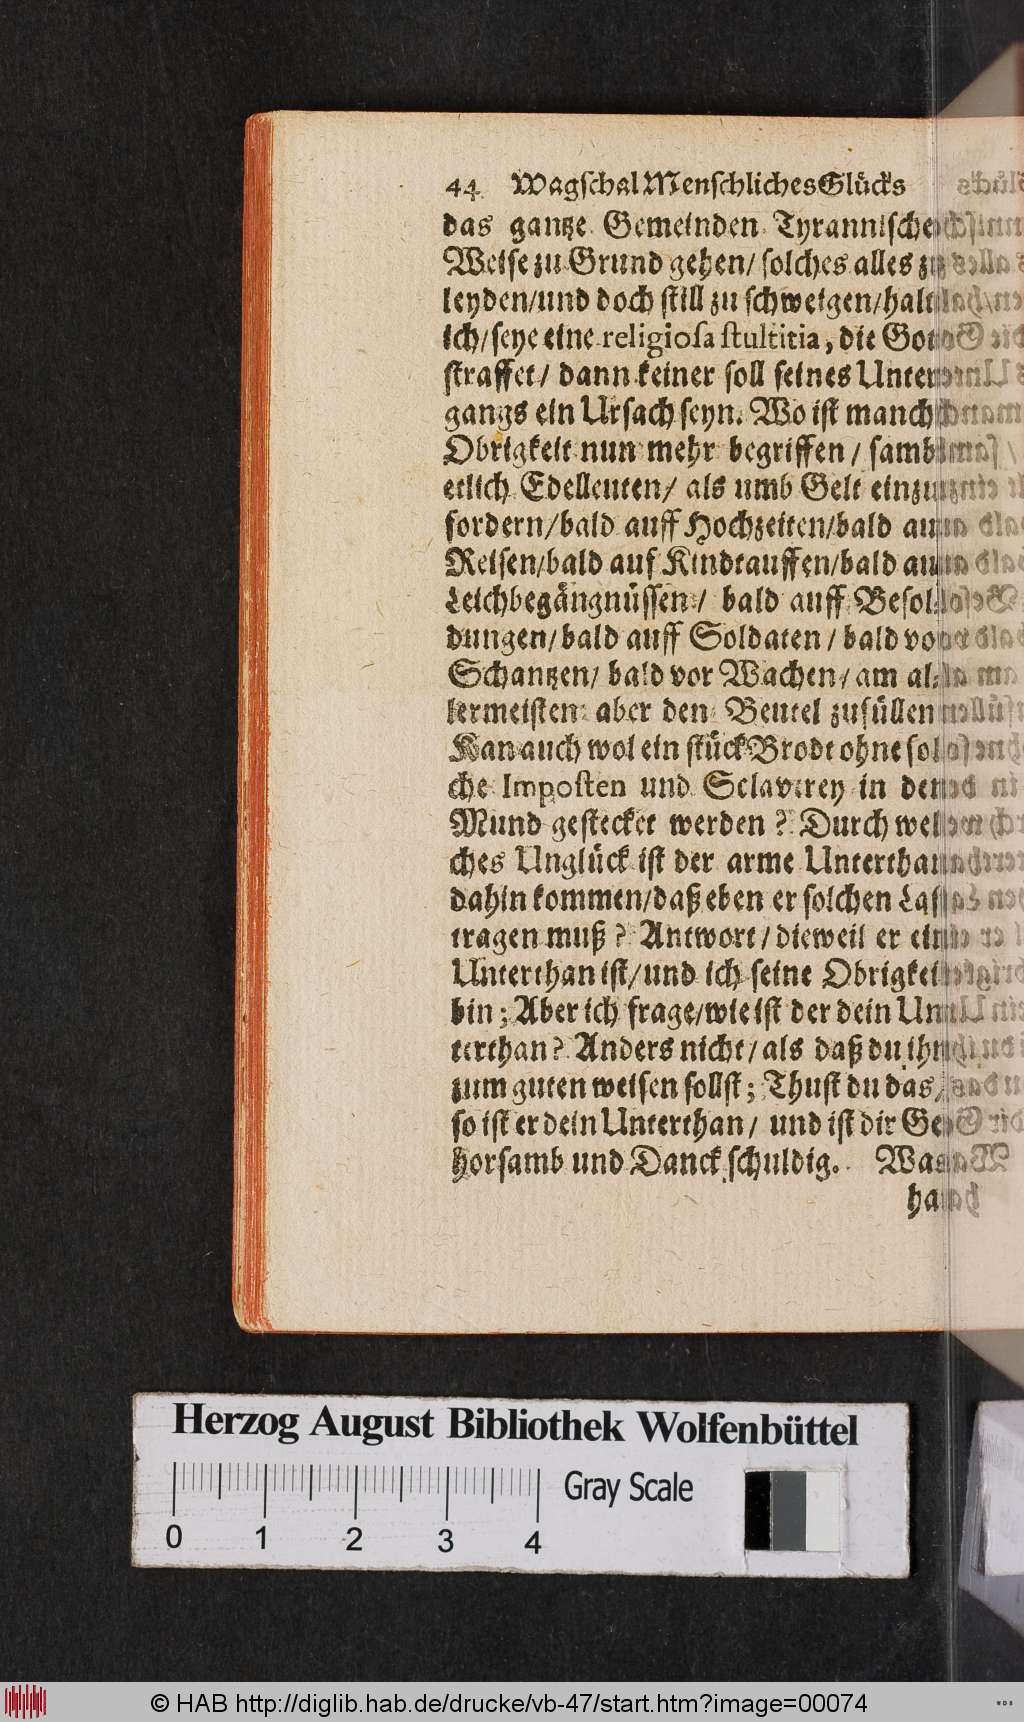 44 Wagschal Menschliches Glücks
das gantze Gemeinden Tyrannische
Weise zu Grund gehen/ solches alles zu
leyden/und doch still zu schweigen/halt
ich/seye eine religiosa stultitia, die Gott
straffet/ dann keiner soll seines Unter-
gangs ein Ursach seyn. Wo ist manch
Obrigkeit nun mehr begriffen/ sambt
etlich Edelleuten/ als umb Gelt einzu-
fordern/bald auff Hochzeiten/bald auff
Reisen/bald auf Kindtauffen/bald auff
Leichbegängnüssen/ bald auff Besol-
dungen/bald auff Soldaten/bald vor
Schantzen/ bald vor Wachen/am al-
lermeisten aber den Beutel zufüllen
Kan auch wol ein stück Brodt ohne sol-
che Imposten und Sclaverey in den
Mund gestecket werden? Durch wel-
ches Unglück ist der arme Unterthan
dahin kommen/daß eben er solchen Last
tragen muß? Antwort/dieweil er ein
Unterthan ist/und ich seine Obrigkeit
bin; Aber ich frage/wie ist der dein Un-
terthan? Anders nicht/als daß du ihn
zum guten weisen sollst; Thust du das/
so ist er dein Unterthan/ und ist dir Ge-
horsamb und Danck schuldig. Was
ha-
Herzog August Bibliothek Wolfenbüttel
Gray Scale
0 1 2 3 4
© HAB http://diglib.hab.de/drucke/vb-47/start.htm?image=00074